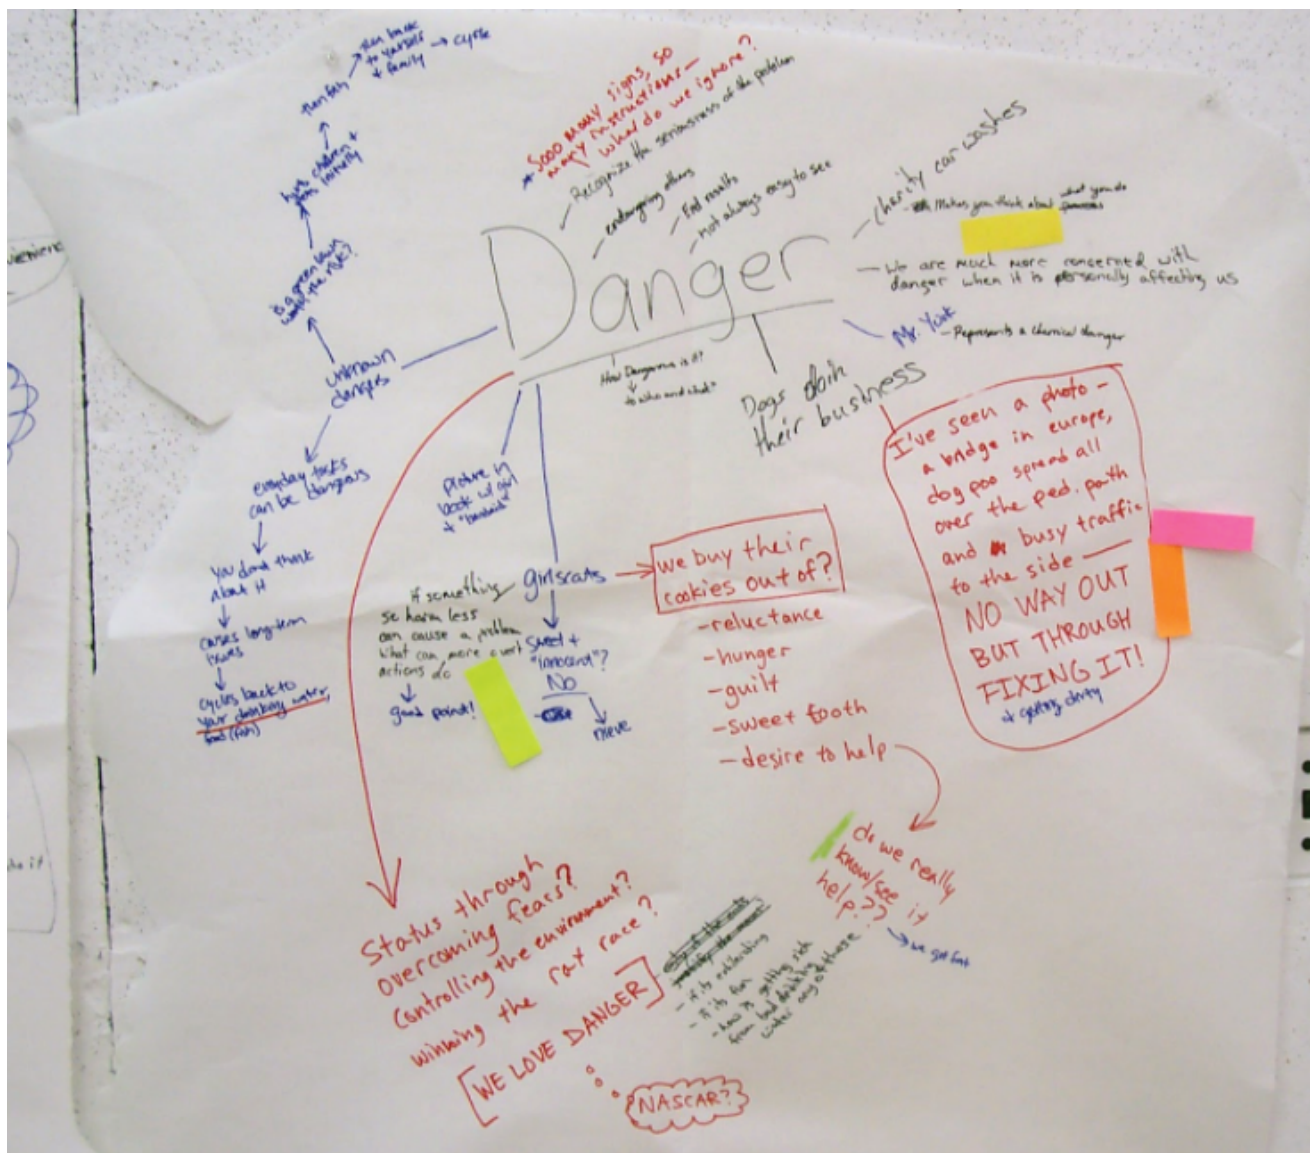 then back
to yourself
+ family
→ cycle
then fish
hurts children +
pets initially
is a green lawn
worth the risk?
unknown
dangers
everyday tasks
can be dangerous
you dont think
about it
causes long-term
issues
cycles back to
your drinking water,
food (fish)
Sooo many signs, so
many instructions—
what do we ignore?
Recognize the seriousness of the problem
endangering others
End results
Not always easy to see
Danger
charity car washes
- Makes you think about what you do
— We are much more concerned with
danger when it is personally affecting us
Mr. Yuk
- Represents a chemical danger
How Dangerous is it?
to who and what"
Dogs doin
their business
I've seen a photo —
a bridge in europe,
dog poo spread all
over the ped. path
and busy traffic
to the side —
NO WAY OUT
BUT THROUGH
FIXING IT!
+ getting dirty
picture in
book w/ girl
+
girlscouts
if something
so harm less
can cause a problem
what can more overt
actions do
good point!
Sweet +
"innocent"?
No
nieve
we buy their
cookies out of?
-reluctance
-hunger
-guilt
-sweet tooth
-desire to help
do we really
know/see it
help???
→ we get fat
Status through
overcoming fears?
Controlling the environment?
winning the rat race?
[WE LOVE DANGER]
NASCAR?
- if its exhilarating
- if its fun
- how is getting sick
from bad drinking
water any of these
do it